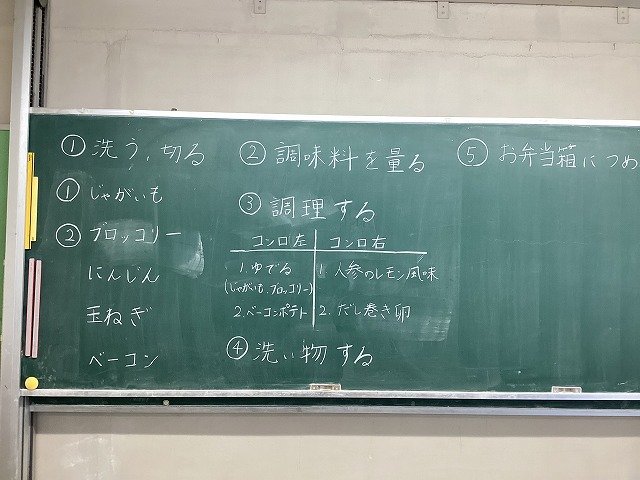 ①洗う、切る
①じゃがいも
②ブロッコリー
にんじん
玉ねぎ
ベーコン
②調味料を量る
③調理する
コンロ左 コンロ右
1.ゆでる
(じゃがいも、ブロッコリー)
2.ベーコンポテト
1.人参のレモン風味
2.だし巻き卵
④洗い物する
⑤お弁当箱につめ